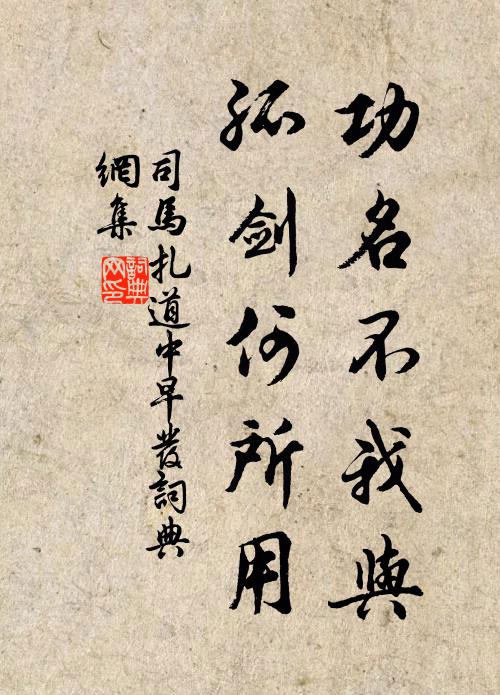 功名不我與
孤剑何所用
司馬扎道中早發詞典
網集
詞典
网印